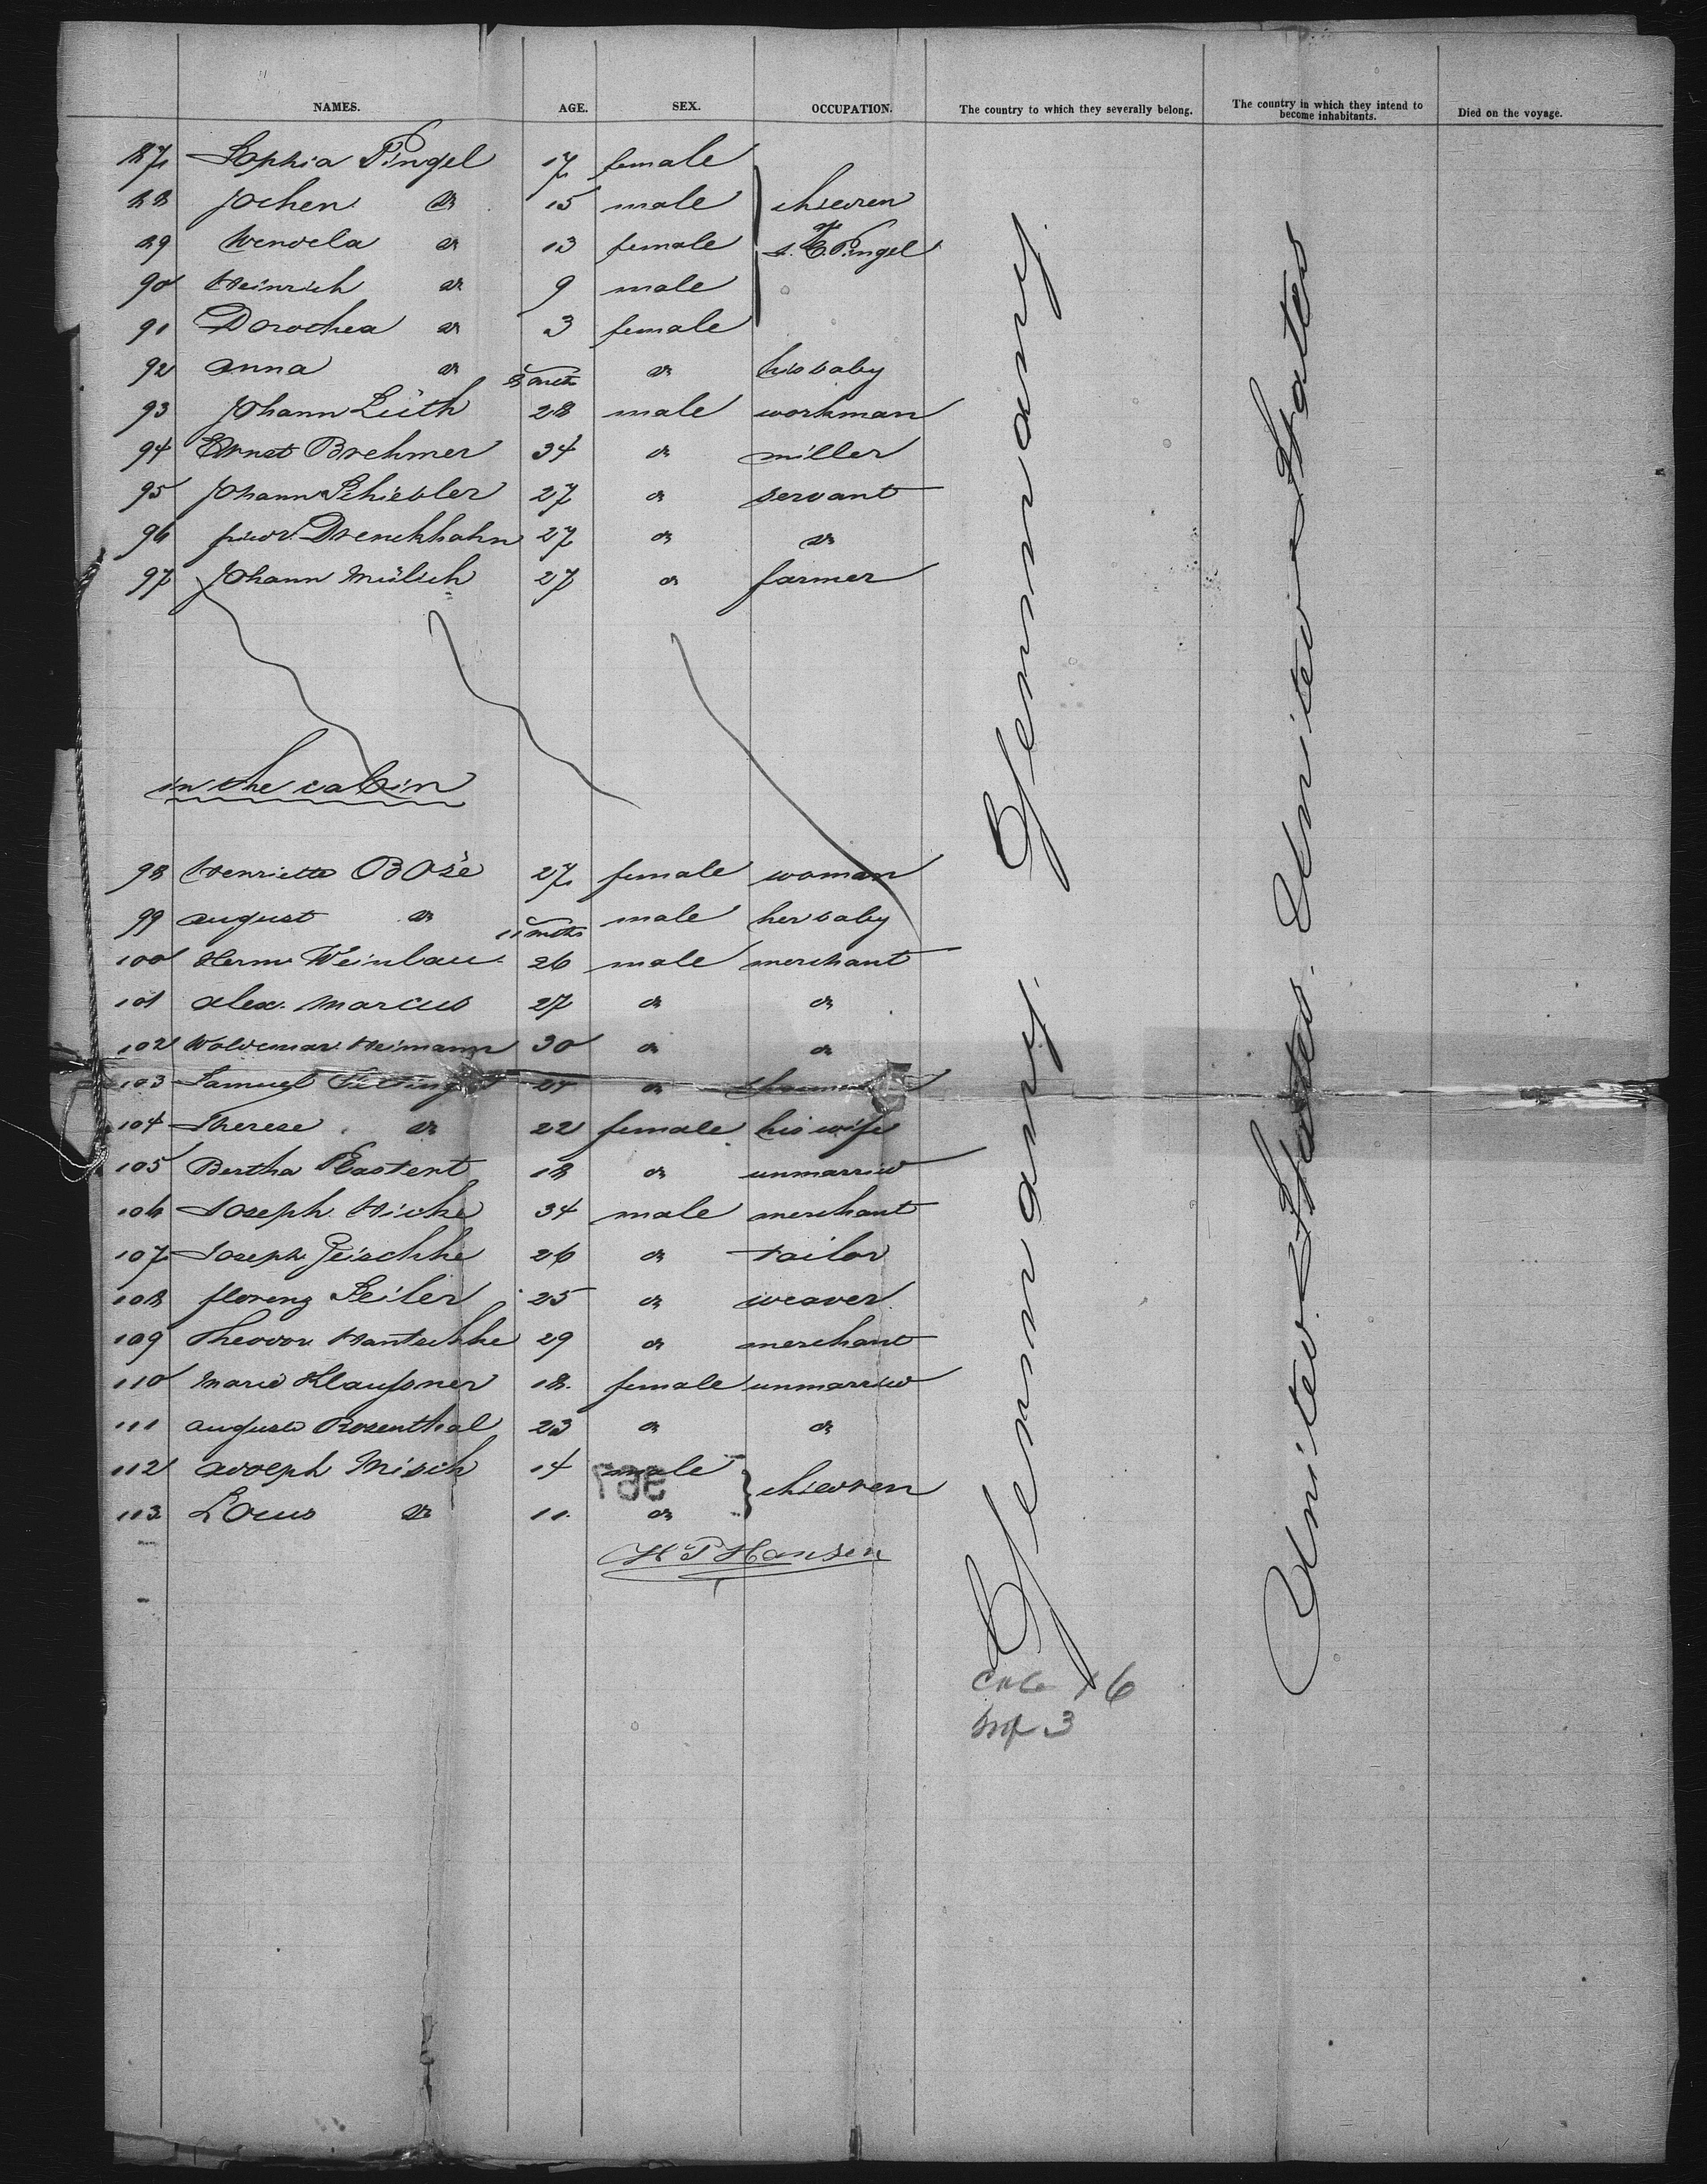 NAMES. AGE. SEX. OCCUPATION. The country to which they severally belong. The country in which they intend to become inhabitants. Died on the voyage.
87 Sophia Pingel 17 female
88 Jochen do 15 male children
89 Wendela do 13 female of s. C. Pingel
90 Heinrich do 9 male
91 Dorothea do 3 female
92 Anna do 8 mths do his baby
93 Johann Lüth 28 male workman
94 Ernst Brehmer 34 do miller
95 Johann Schiebler 27 do servant
96 Friedr. Drenckhahn 27 do do
97 Johann Mülsch 27 do farmer
in the cabin
98 Henriette Bose 27 female woman
99 August do 11 mths male her baby
100 Herm. Weinbau 26 male merchant
101 Alex. Marcus 27 do do
102 Waldemar Heimann 30 do do
103 Samuel 24 do
104 Therese do 22 female his wife
105 Bertha 18 do unmarried
106 Joseph Hicke 34 male merchant
107 Joseph Zeischke 26 do tailor
108 Florenz Seiler 25 do weaver
109 Theodor Hantschke 29 do merchant
110 Marie Klaußner 18. female unmarried
111 Auguste Rosenthal 23 do do
112 Adolph Misch 14 male children
113 Louis do 11. do
H P Hansen
Germany. Germany.
United States. United States
16
3